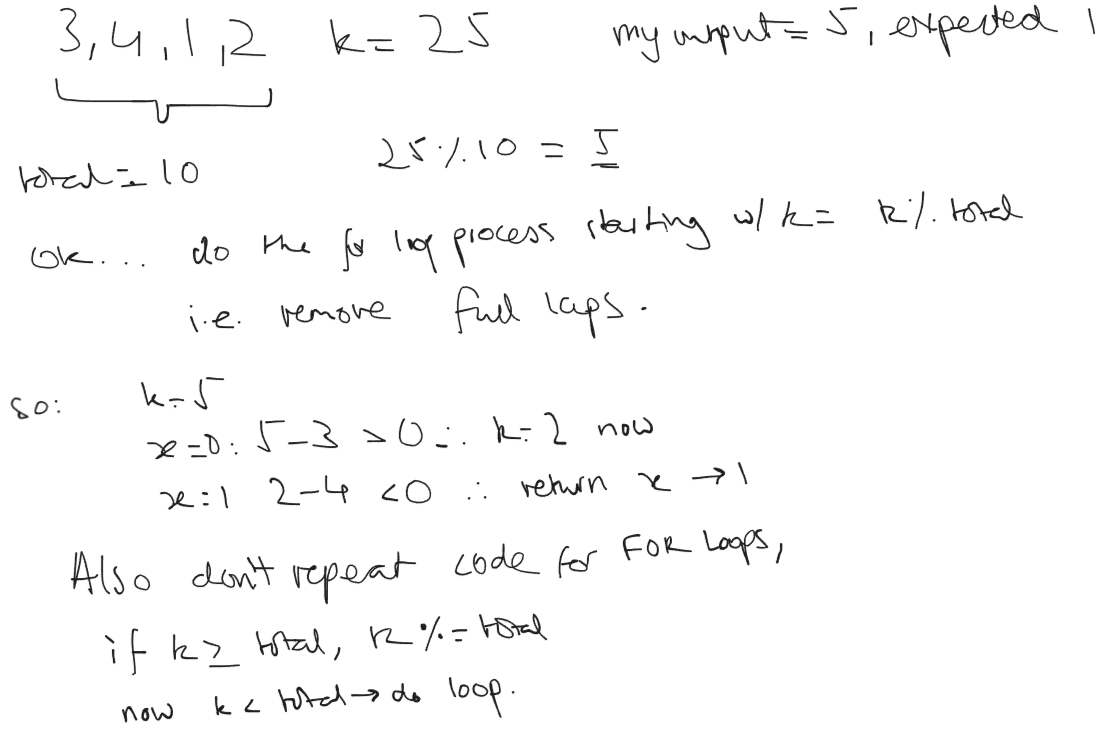 3, 4, 1, 2 k = 25 my output = 5, expected 1
total = 10 25 % 10 = 5
OK... do the for loop process starting w/ k = k % total
i.e. remove full laps.
so: k = 5
x = 0: 5 - 3 > 0 ∴ k = 2 now
x = 1 2 - 4 < 0 ∴ return x → 1
Also don't repeat code for FOR Loops,
if k ≥ total, k %= total
now k < total → do loop.